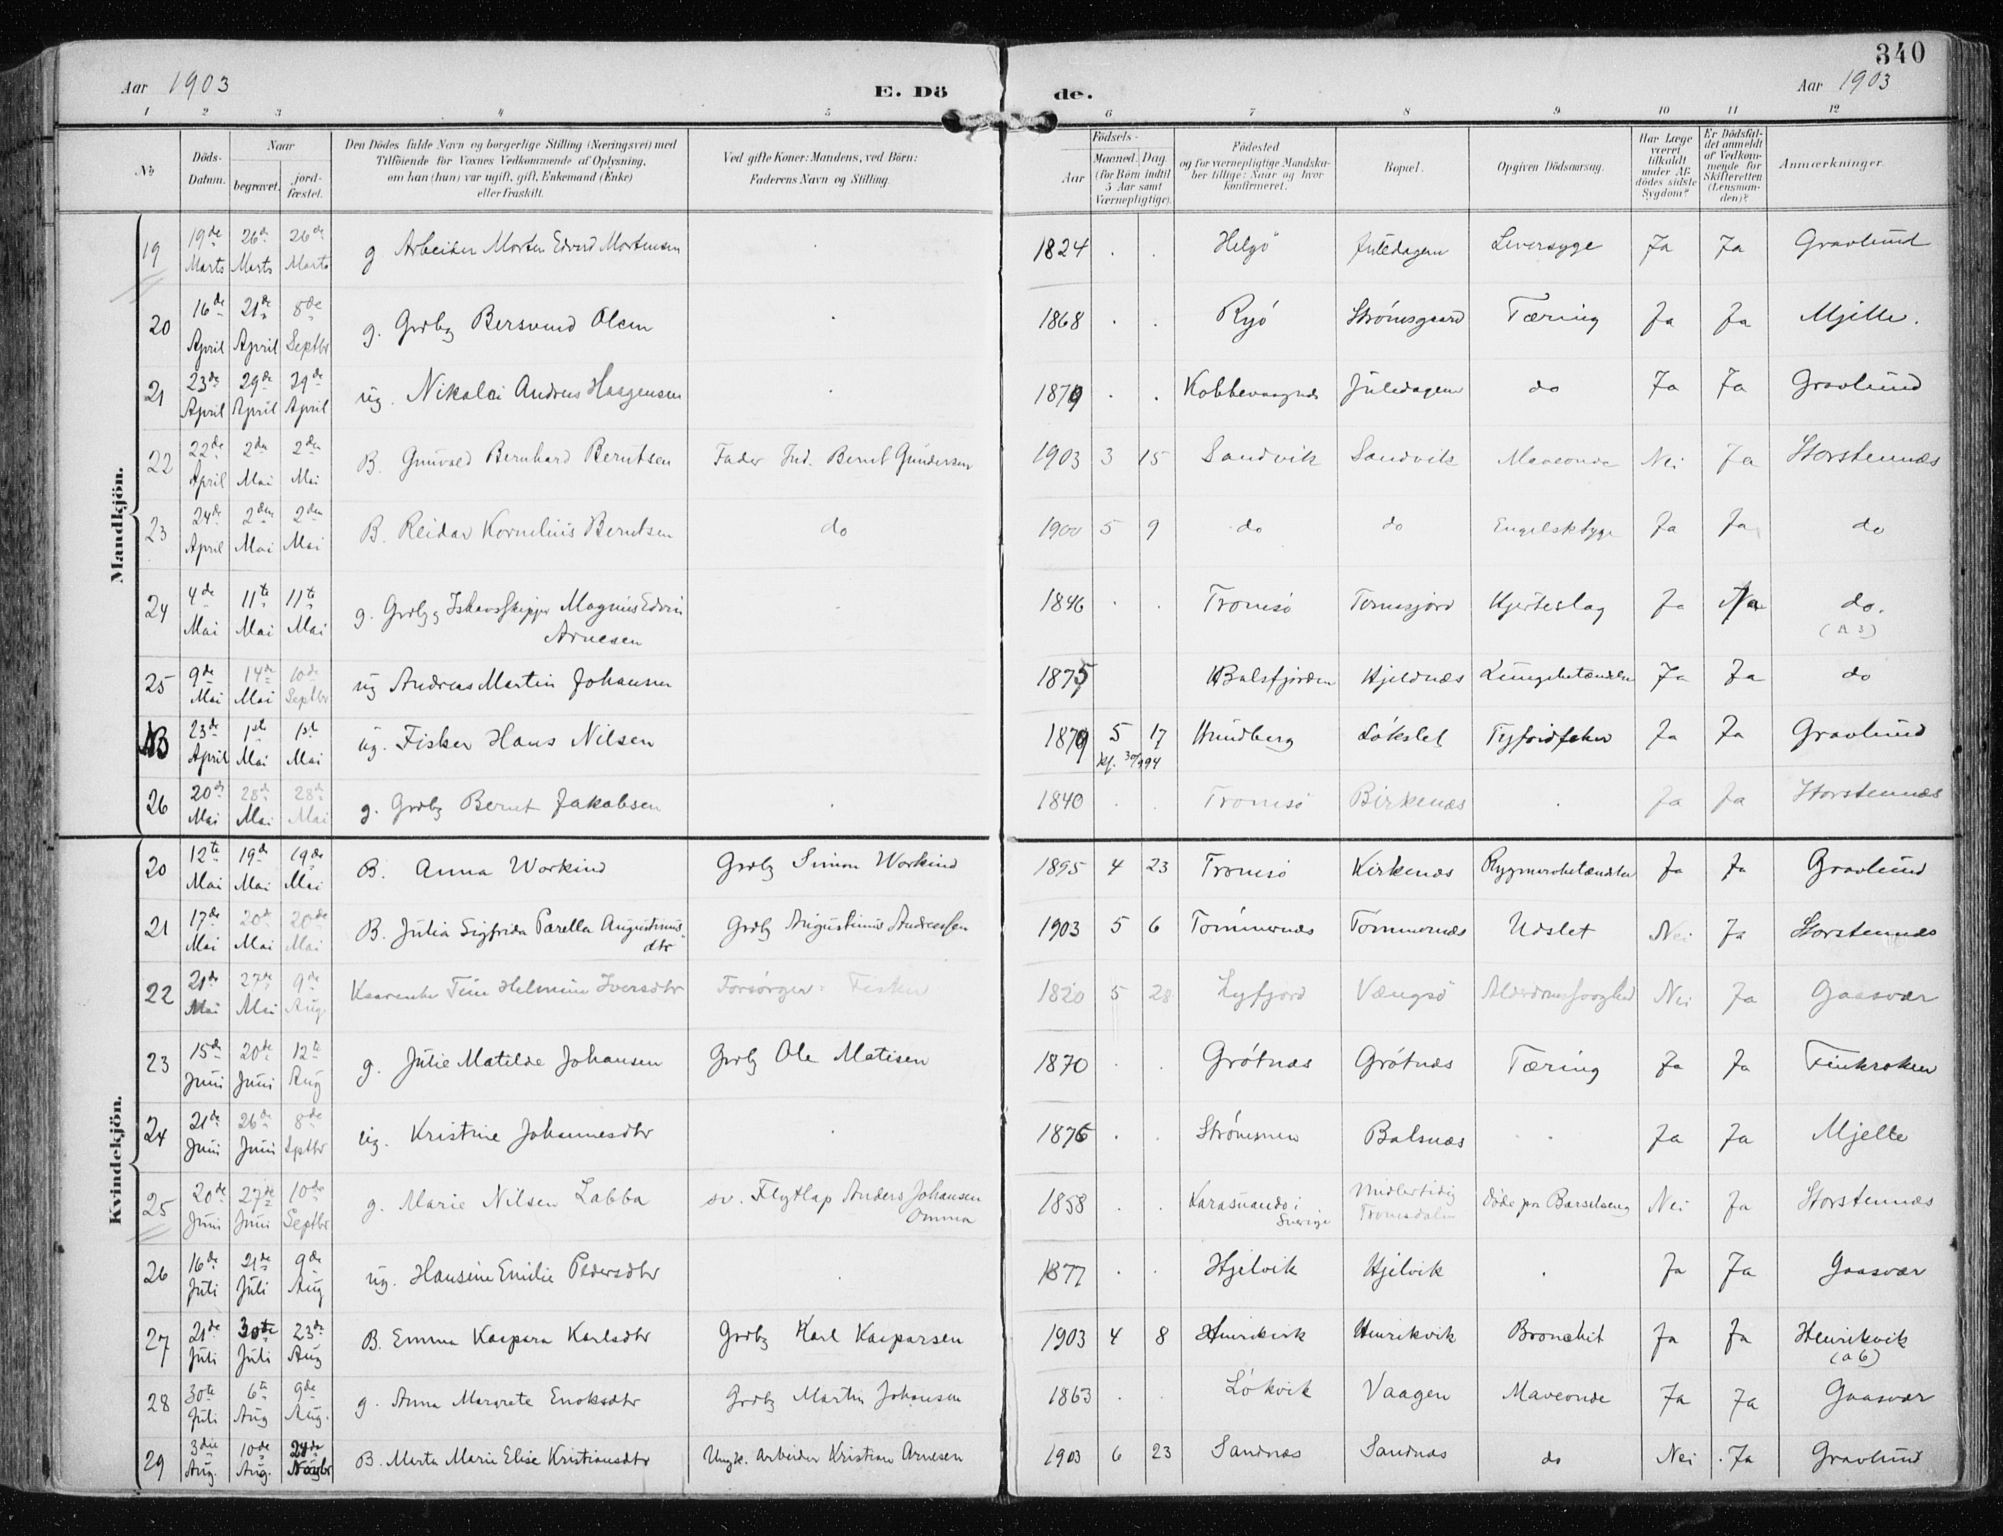 340
Aar 1903 E. Dö de. Aar 1903
1 2 3 4 5 6 7 8 9 10 11 12
No Döds-Datum. Naar begravet. jord-fæstet. Den Dödes fulde Navn og borgerlige Stilling (Næringsvei) med Tilföiende for Voxnes Vedkommende af Oplysning, om han (hun) var ugift, gift, Enkemand (Enke) eller fraskilt. Ved gifte Koner: Mandens, ved Börn: Faderens Navn og Stilling. Födsels- Aar Maaned. Dag. (for Börn indtil 5 Aar samt Værnepligtige). Födested og for værnepligtige Mandskaber tillige: Naar og hvor konfirmeret. Bopæl. Opgiven Dödsaarsag. Har Læge været tilkaldt under Afdödes sidste Sygdom? Er Dödsfaldet anmeldt af Vedkommende for Skifteretten (Lensmanden)? Anmærkninger.
Mandkjön.
19 19de Marts 26de Marts 26de Marts g Arbeider Morten Edvard Mortensen 1824 Helgö Juledagen Leversyge Ja Ja Gravlund
20 16de April 21de April 8de Septbr g. Grdbg Bersvend Olsen 1868 Ryó Strómsgaard Tæring Ja Ja Mjelle.
21 23de April 29de April 29de April ug. Nikolai Andreas Haagensen 1879 Kobbevaagnes Juledagen do Ja Ja Gravlund
22 22de April 2den Mai 2den Mai B. Gunvald Bernhard Berntsen Fader Ind. Bernt Gundersen 1903 3 15 Sandvik Sandvik Maveonde Nei Ja Storstennæs
23 24de April 2den Mai 2den Mai B. Reidar Kornelius Berntsen do 1900 5 9 do do Engelsksyge Ja Ja do
24 4de Mai 11te Mai 11te Mai g. Grdbg Ishavsskipper Magnus Edvin Arnesen 1846 Tromsó Tomasjord Hjerteslag Ja do. (A 3)
25 9de Mai 14de Mai 10de Septbr ug Andreas Martin Johansen 1875 Balsfjorden Hjeldnæs Lungebetændelse Ja Ja do
NB 23de April 1ste Mai 1ste Mai ug. Fisker Hans Nilsen 1879 5 17 Hundberg Lókslet Tyfoidfeber Ja Ja Gravlund
kf. 30/9 94
26 20de Mai 28de Mai 28de Mai g. Grdbg Bernt Jakobsen 1840 Tromsó Birkenæs Ja Ja Storstennæs
Kvindekjön.
20 12te Mai 19de Mai 19de Mai B. Anna Workind Grdbg Simon Workind 1895 4 23 Tromsó Kirkenæs Rygmarvsbetændelse Ja Ja Gravlund
21 17de Mai 20de Mai 20de Mai B. Julia Sigfrida Parella Augustinusdtr Grdbg Augustinus Andreassen 1903 5 6 Tómmernæs Tómmernæs Udslet Nei Ja Storstennæs
22 21de Mai 27de Mai 9de Aug Helmine Iversdtr Forsórger: Fisker 1820 5 28 Lyfjord Vængsó Nei Ja Gaasvær
23 15de Juni 20de Juni 12te Aug g. Julie Matilde Johansen Grdbg Ole Matisen 1870 Grótnæs Grótnæs Tæring Ja Ja Finkroken
24 21de Juni 26de Juni 8de Septbr ug. Kristine Johannesdtr 1876 Strómmen Balsnæs Ja Ja Mjelle
25 20de Juni 27de Juni 10de Septbr g. Marie Nilsen Labba sv. Flytlap Anders Johansen Omma 1858 Karasuando i Sverige Midlertidig Tromsdalen Döde paa Barselseng Nei Ja Storstennæs
26 16de Juli 21de Juli 9de Aug ug. Hansine Emilie Pedersdtr 1877 Hjelvik Hjelvik Ja Ja Gaasvær
27 21de Juli 30te Juli 23de Aug B. Emma Kaspara Karlsdtr Grdbg Karl Kasparsen 1903 4 8 Henrikvik Henrikvik Bronchit Ja Ja Henrikvik (a 6)
28 30te Juli 6te Aug 9de Aug. g. Anna Margrete Enoksdtr Grdbg Martin Johansen 1863 Lókvik Vaagen Maveonde Ja Ja Gaasvær
29 3die Aug. 10de Aug. Novbr B. Marta Marie Elise Kristiansdtr Ungk. Arbeider Kristian Arnesen 1903 6 23 Sandnæs Sandnæs do Nei Ja Gravlund